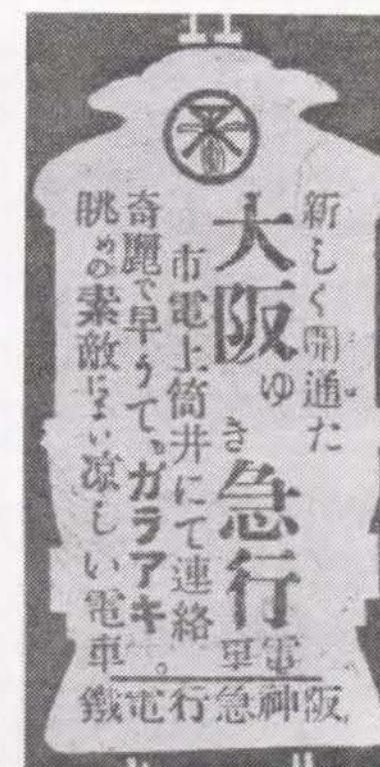 新しく開通た
大阪ゆき急行電車
市電上筒井にて連絡
奇麗で早うて。ガラアキ。
眺めの素敵によい涼しい電車
阪神急行電鐵